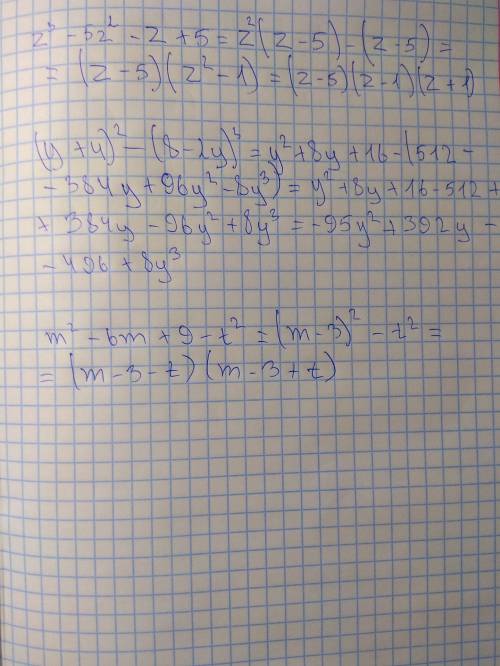 z³ - 5z² - z + 5 = z²(z - 5) - (z - 5) =
= (z - 5)(z² - 1) = (z - 5)(z - 1)(z + 1)
(y + 4)² - (8 - 2y)³ = y² + 8y + 16 - (512 -
- 384y + 96y² - 8y³) = y² + 8y + 16 - 512 +
+ 384y - 96y² + 8y³ = -95y² + 392y -
- 496 + 8y³
m² - 6m + 9 - t² = (m - 3)² - t² =
= (m - 3 - t)(m - 3 + t)